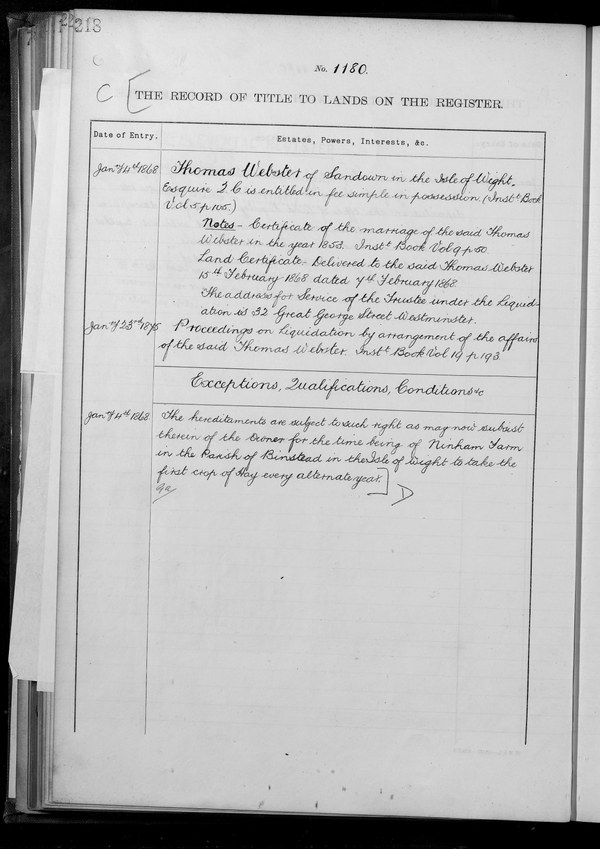 218
No. 1180.
C [THE RECORD OF TITLE TO LANDS ON THE REGISTER.
Date of Entry.
Estates, Powers, Interests, &c.
Jany 14th 1868 Thomas Webster of Sandown in the Isle of Wight.
Esquire Q C is entitled in fee simple in possession (Inst. Book
Vol 5 p 105.)
Notes - Certificate of the marriage of the said Thomas
Webster in the year 1853. Inst. Book Vol 9 p 50
Land Certificate - Delivered to the said Thomas Webster
15th February 1868 dated 7th February 1868
The address for Service of the Trustee under the Liquid-
ation is 32 Great George Street Westminster.
Jany 23rd 1875 Proceedings on Liquidation by arrangement of the affairs
of the said Thomas Webster. Inst. Book Vol 19 p 193
Exceptions, Qualifications, Conditions &c
Jany 14th 1868 The hereditaments are subject to such right as may now subsist
therein of the owner for the time being of Ninham Farm
in the Parish of Binstead in the Isle of Wight to take the
first crop of Hay every alternate year.]
D